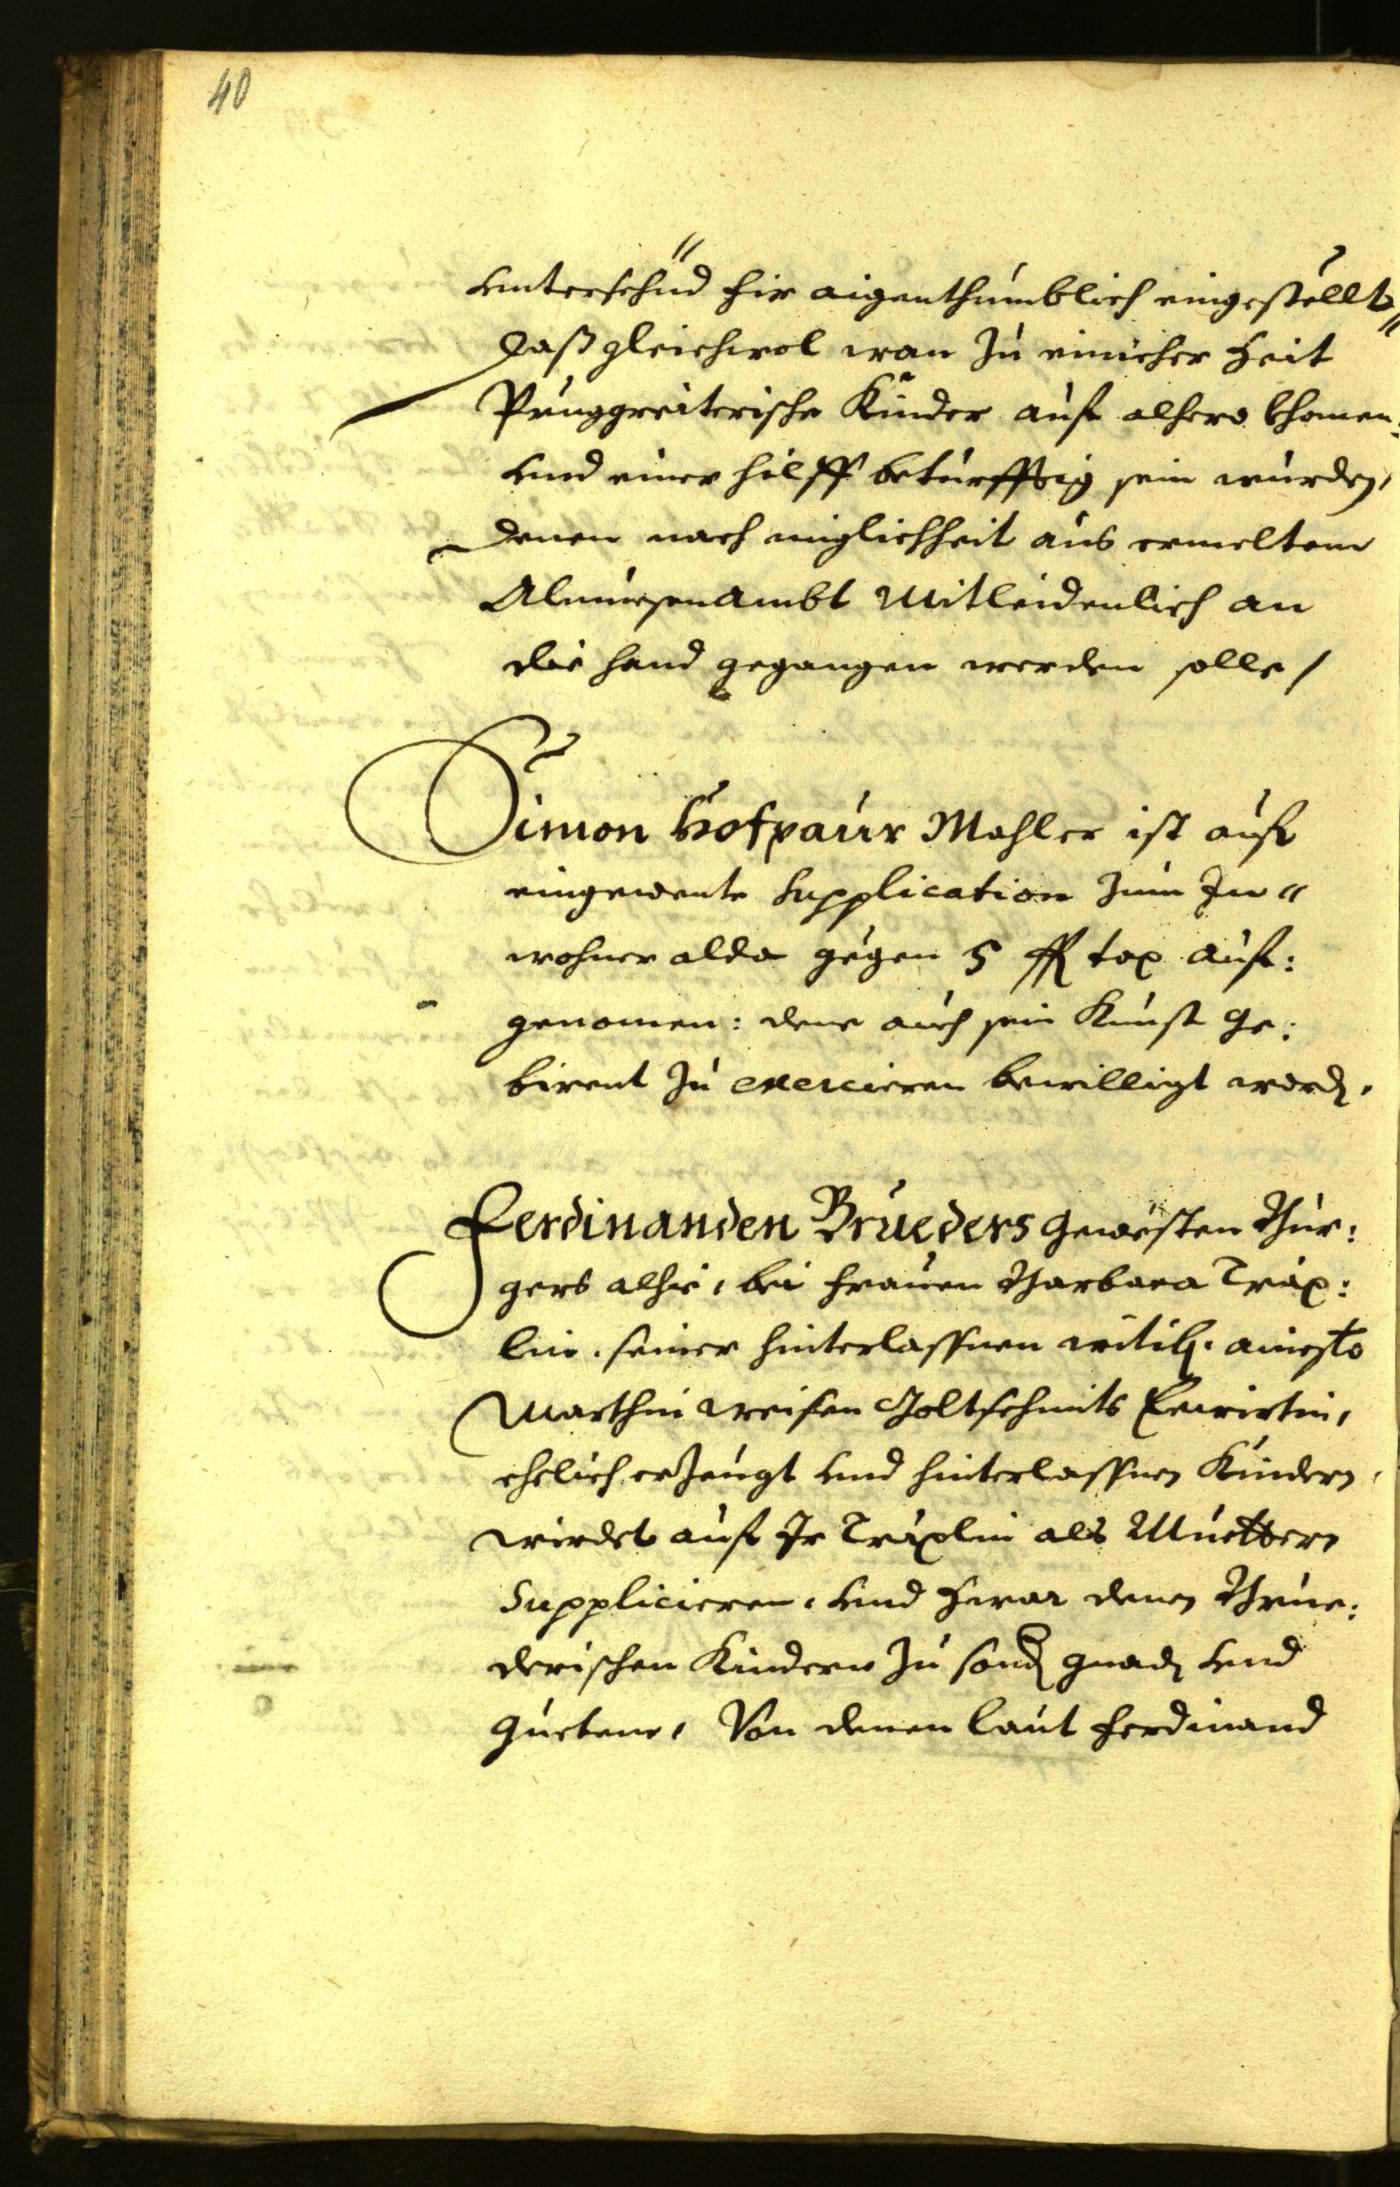 40
unterschüd fir aigenthumblich eingestellt,
Daß gleichwol wan zu einicher Zeit
Prunggreiterische Kinder auf alhero khomen:
und einer hilff betürfftig sein wurden,
denen nach miglichkheit aus ermeltem
Almuesenambt Mitleidenlich an
die hand gegangen werden solle /
Simon Hofpaur Mahler ist auf
eingewente Supplication zum In"
wohner alda gegen 5 fl tax auf:
genomen: deme auch sein Kunst ge:
birent zu exercieren bewilligt word.
Ferdinanden Brueders gewesten Bur:
gers alhie, bei frauen Barbara Träx:
lin. seiner hinterlassnen witib. aniezto
Marthin weisen Goltschmits Ewirtin,
ehelich erzeugt und hinterlassnen Kindern,
wirdet auf Ir Träxlin als Muetter
Supplicieren, und zwar denen Brue:
derischen Kindern zu sond gnad und
guetem, Von denen laut Ferdinand